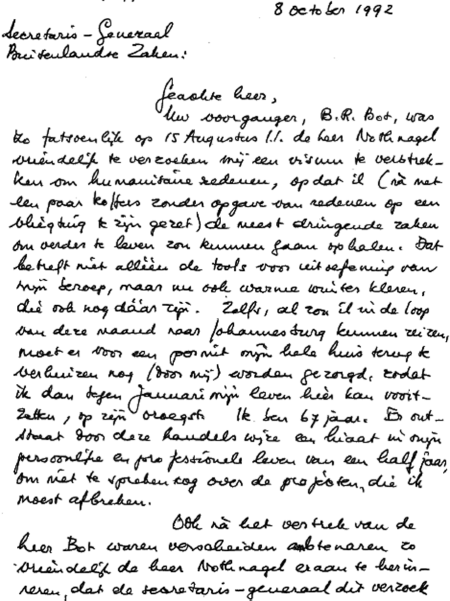 8 October 1992
Secretaris-Generaal
Buitenlandse Zaken:
Geachte heer,
Uw voorganger, B.R. Bot, was
zo fatsoenlijk op 15 Augustus l.l. de heer Nothnagel
vriendelijk te verzoeken mij een visum te verstrek-
ken om humanitaire redenen, opdat ik (na met
een paar koffers zonder opgave van redenen op een
vliegtuig te zijn gezet) de meest dringende zaken
om verder te leven zou kunnen gaan ophalen. Dat
betreft niet alléén de tools voor uitoefening van
mijn beroep, maar nu ook warme winter kleren,
die ook nog dáár zijn. Zelfs, al zou ik in de loop
van deze maand naar Johannesburg kunnen reizen,
moet er voor een permit mijn hele huis terug te
verhuizen nog (door mij) worden gezorgd, zodat
ik dan tegen Januari mijn leven hier kan voort-
zetten, op zijn vroegst. Ik ben 67 jaar. Er ont-
staat door deze handels wijze een hiaat in mijn
persoonlijke en professionele leven van een half jaar,
om niet te spreken nog over de projecten, die ik
moest afbreken.
Ook na het vertrek van de
heer Bot waren verscheiden ambtenaren zo
vriendelijk de heer Nothnagel eraan te herin-
neren, dat de secretaris-generaal dit verzoek